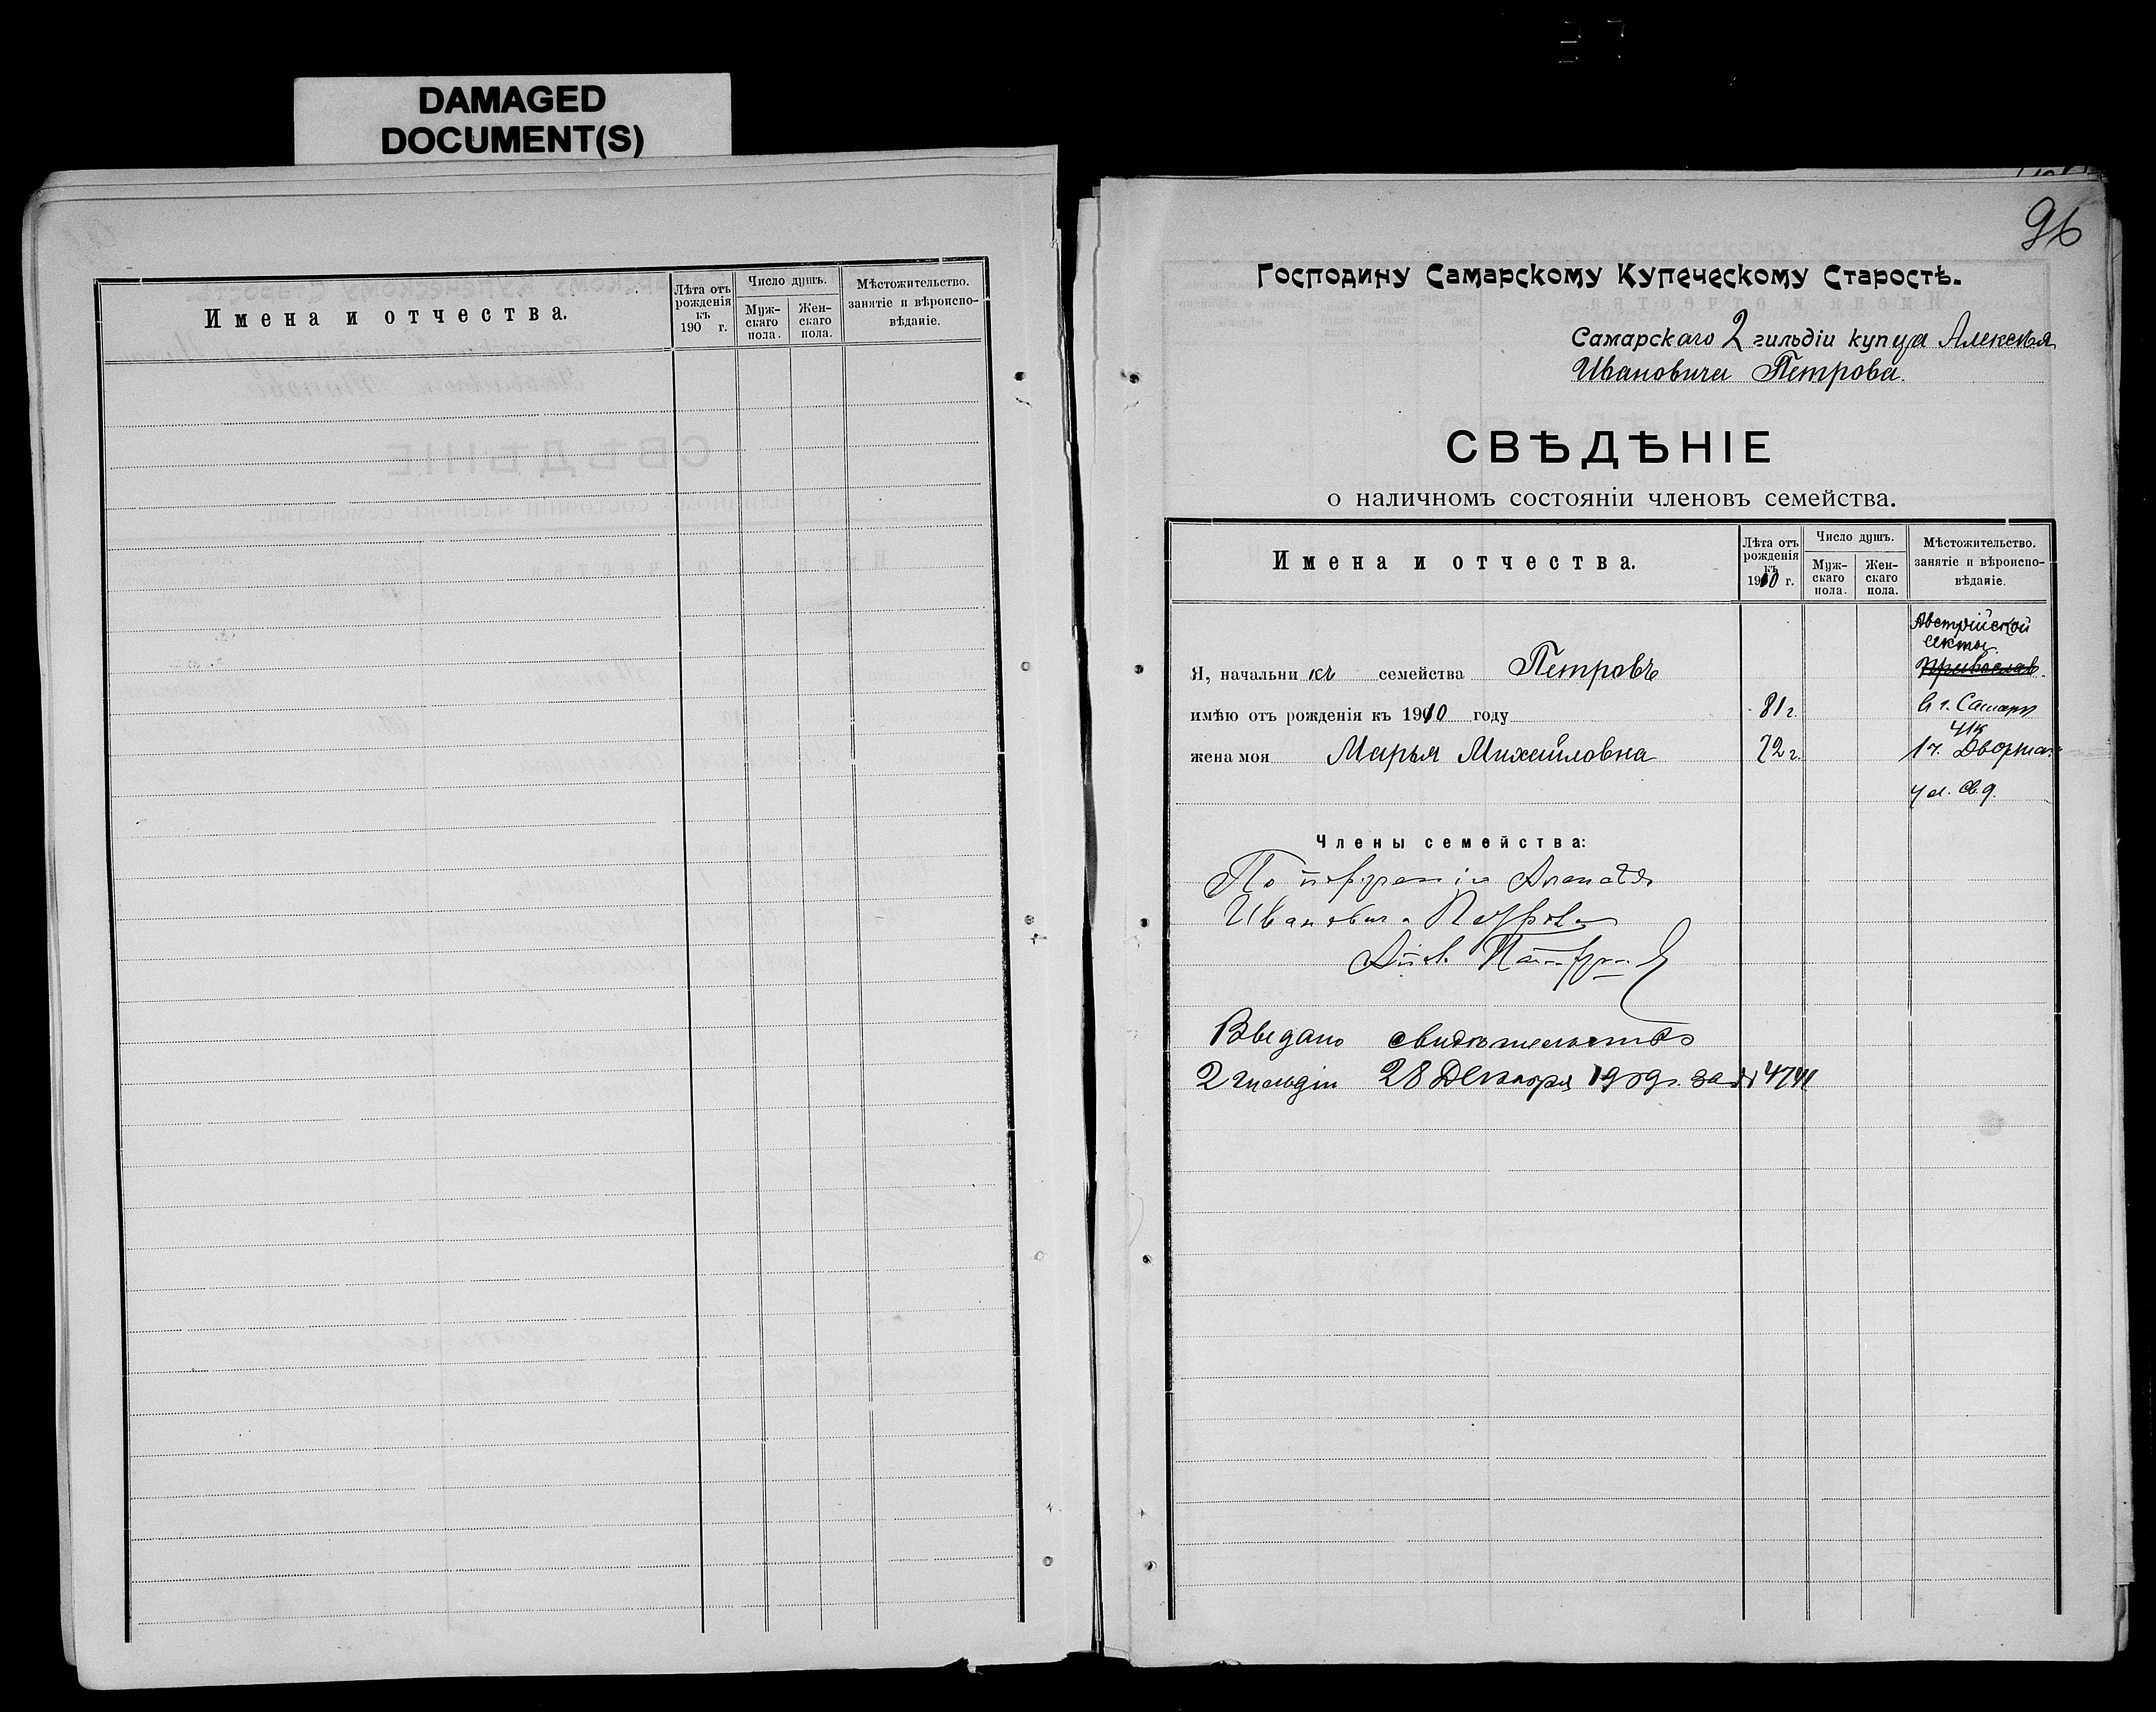 DAMAGED
DOCUMENT(S)
Имена и отчества.
Лѣта отъ рожденія къ 190 г.
Число душъ.
Муж-скаго пола.
Жен-скаго пола.
Мѣстожительство. занятіе и вѣроиспо-вѣданіе.
96
Господину Самарскому Купеческому Старостѣ.
Самарскаго 2 гильдіи купца Алексѣя
Ивановича Петрова.
СВѢДѢНІЕ
о наличномъ состояніи членовъ семейства.
Имена и отчества.
Лѣта отъ рожденія къ 1910 г.
Число душъ.
Муж-скаго пола.
Жен-скаго пола.
Мѣстожительство. занятіе и вѣроиспо-вѣданіе.
Австрійской
секты
Я, начальникъ семейства Петровъ
имѣю отъ рожденія къ 1910 году 81 г. в г. Самары
жена моя Марья Михайловна 72 г. 1 ч. Дворян.
ул. св. д.
Члены семейства:
По порученію
Ивановича Петрова
свидѣтельство
2 гильдіи 28 Декабря 1909 г. за № 4741